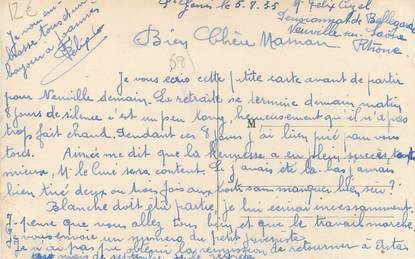 12€
St Genis le 5.8.35
Mr Felix Cuzel
Pensionnat de Bellegarde
Neuville sur Saône
Rhône
Je vous embrasse tous
Félix
Bien Chère Maman
Je vous écris cette petite carte avant de partir
pour Neuville demain. La retraite se termine demain matin
8 jours de silence c'est un peu long, heureusement qu'il n'a pas
trop fait chaud. Pendant ces 8 jours j'ai bien prié pour vous
tous.
Aimée me dit que la Kermesse a eu plein succès, tant
mieux, Mr le Curé sera content. Si j'avais été là-bas j'aurais
bien tiré deux ou trois fois aux sans manquer bien sûr !
Blanche doit être partie, je lui écrirai incessamment.
Je pense que vous allez tous bien et que le travail marche.
Je vous envoie un numéro du petit
Je n'ai pas pu obtenir la permission de retourner à
au mois de septembre, je le regrette